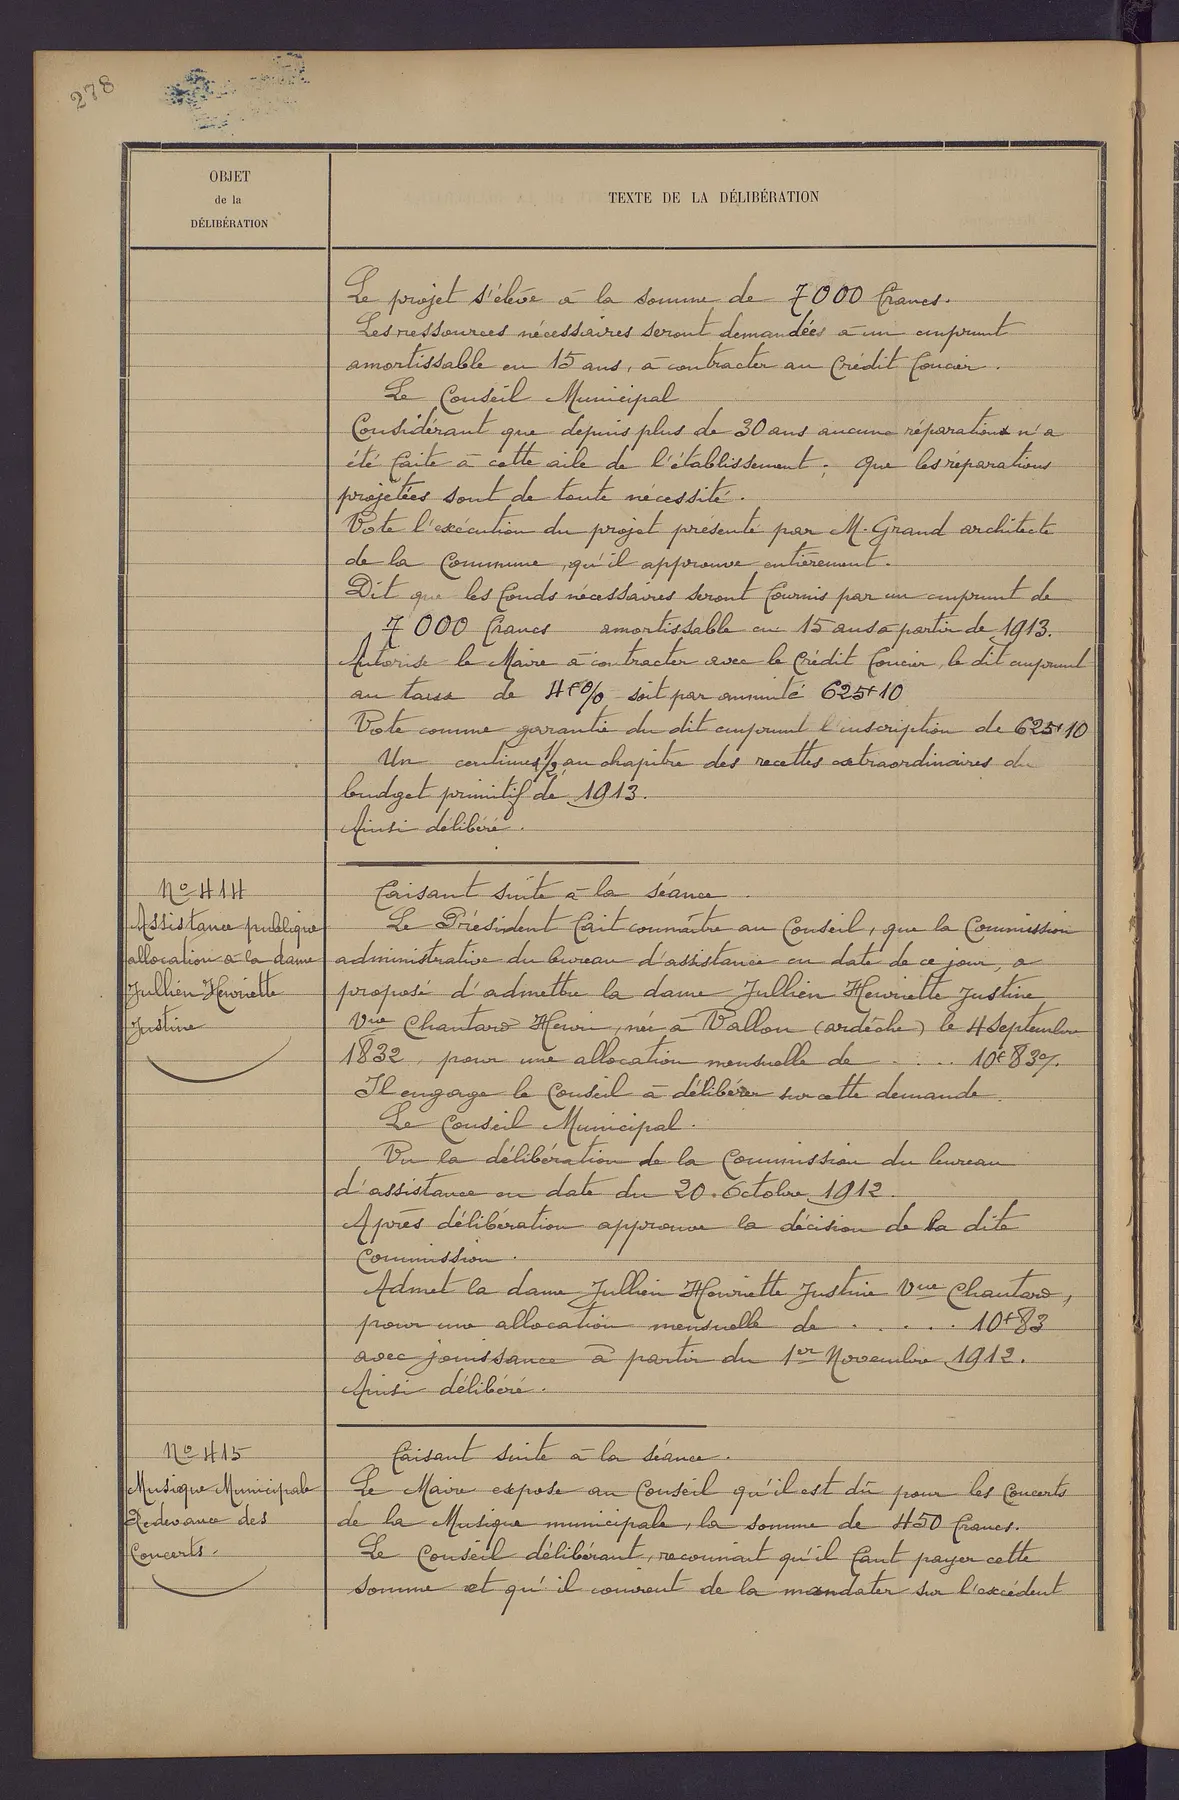 278
OBJET
de la
DÉLIBÉRATION
TEXTE DE LA DÉLIBÉRATION
Le projet s'élève à la somme de 7000 francs.
Les ressources nécessaires seront demandées à un emprunt
amortissable en 15 ans, à contracter au Crédit foncier.
Le Conseil Municipal
Considérant que depuis plus de 30 ans aucune réparation n'a
été faite à cette aile de l'établissement ; que les réparations
projetées sont de toute nécessité.
Vote l'exécution du projet présenté par M. Grand architecte
de la Commune, qu'il approuve entièrement.
Dit que les fonds nécessaires seront fournis par un emprunt de
7 000 francs amortissable en 15 ans à partir de 1913.
Autorise le Maire à contracter avec le Crédit foncier, le dit emprunt
au taux de 4f% soit par annuité 625f10
Vote comme garantie du dit emprunt l'inscription de 625f10
Un centimes 1/2, au chapitre des recettes extraordinaires du
budget primitif de 1913.
Ainsi délibéré.
No 414
Assistance publique
allocation à la dame
Jullien Henriette
Justine
Faisant suite à la séance.
Le Président fait connaître au Conseil, que la Commission
administrative du bureau d'assistance en date de ce jour, a
proposé d'admettre la dame Jullien Henriette Justine
Vve Chautard Henri, née à Vallon (ardèche) le 4 Septembre
1832, pour une allocation mensuelle de . . . . 10f83c/.
Il engage le Conseil à délibérer sur cette demande.
Le Conseil Municipal.
Vu la délibération de la Commission du bureau
d'assistance en date du 20 Octobre 1912.
Après délibération approuve la décision de la dite
Commission.
Admet la dame Jullien Henriette Justine Vve Chautard,
pour une allocation mensuelle de . . . . . 10f83
avec jouissance à partir du 1er Novembre 1912.
Ainsi délibéré.
No 415
Musique Municipale
Redevance des
Concerts.
Faisant suite à la séance.
Le Maire expose au Conseil qu'il est dû pour les Concerts
de la Musique municipale, la somme de 450 francs.
Le Conseil délibérant, reconnait qu'il faut payer cette
somme et qu'il convient de la mandater sur l'excédent